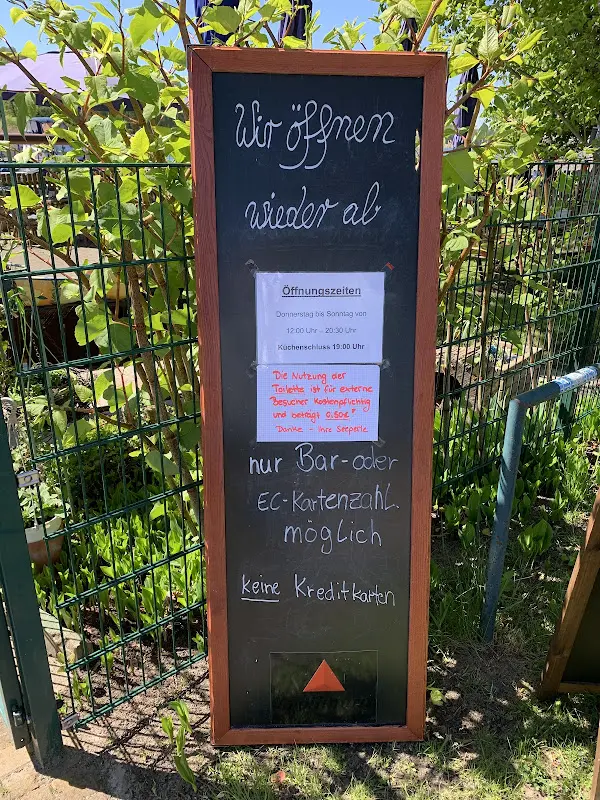 Wir öffnen
wieder ab
Öffnungszeiten
Donnerstag bis Sonntag von
12:00 Uhr – 20:30 Uhr
Küchenschluss 19:00 Uhr
Die Nutzung der
Toilette ist für externe
Besucher Kostenpflichtig
und beträgt 0,50€
Danke – ihre Seeperle
nur Bar- oder
EC-Kartenzahl.
möglich
keine Kreditkarten